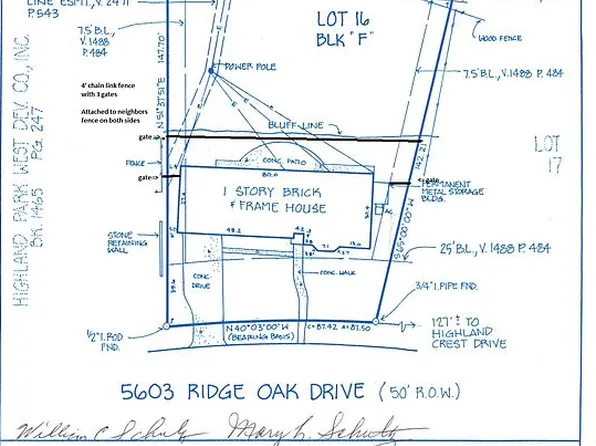 LINE ESMT., V. 2471
P. 543
7.5' B.L.,
V. 1488
P. 484
LOT 16
BLK "F"
WOOD FENCE
N 51° 37' 51" E 147.70'
POWER POLE
7.5' B.L., V. 1488 P. 484
4' chain link fence
with 3 gates
Attached to neighbors
fence on both sides
HIGHLAND PARK WEST DEV. CO., INC.
BK. 1465 PG. 247
BLUFF LINE
gate
FENCE
CONC. PATIO
142.21'
LOT
17
gate
80.0
gate
1 STORY BRICK
& FRAME HOUSE
PERMANENT
METAL STORAGE
BLDG.
AC
STONE
RETAINING
WALL
48.2
4.2
S 65° 00' 00" W
25' B.L., V. 1488 P. 484
CONC.
DRIVE
CONC. WALK
3/4" I. PIPE FND.
1/2" I. ROD
FND.
N 40° 03' 00" W C=87.42 A=87.50
(BEARING BASIS)
127' ± TO
HIGHLAND
CREST DRIVE
5603 RIDGE OAK DRIVE (50' R.O.W.)
William C Schultz Mary L. Schultz